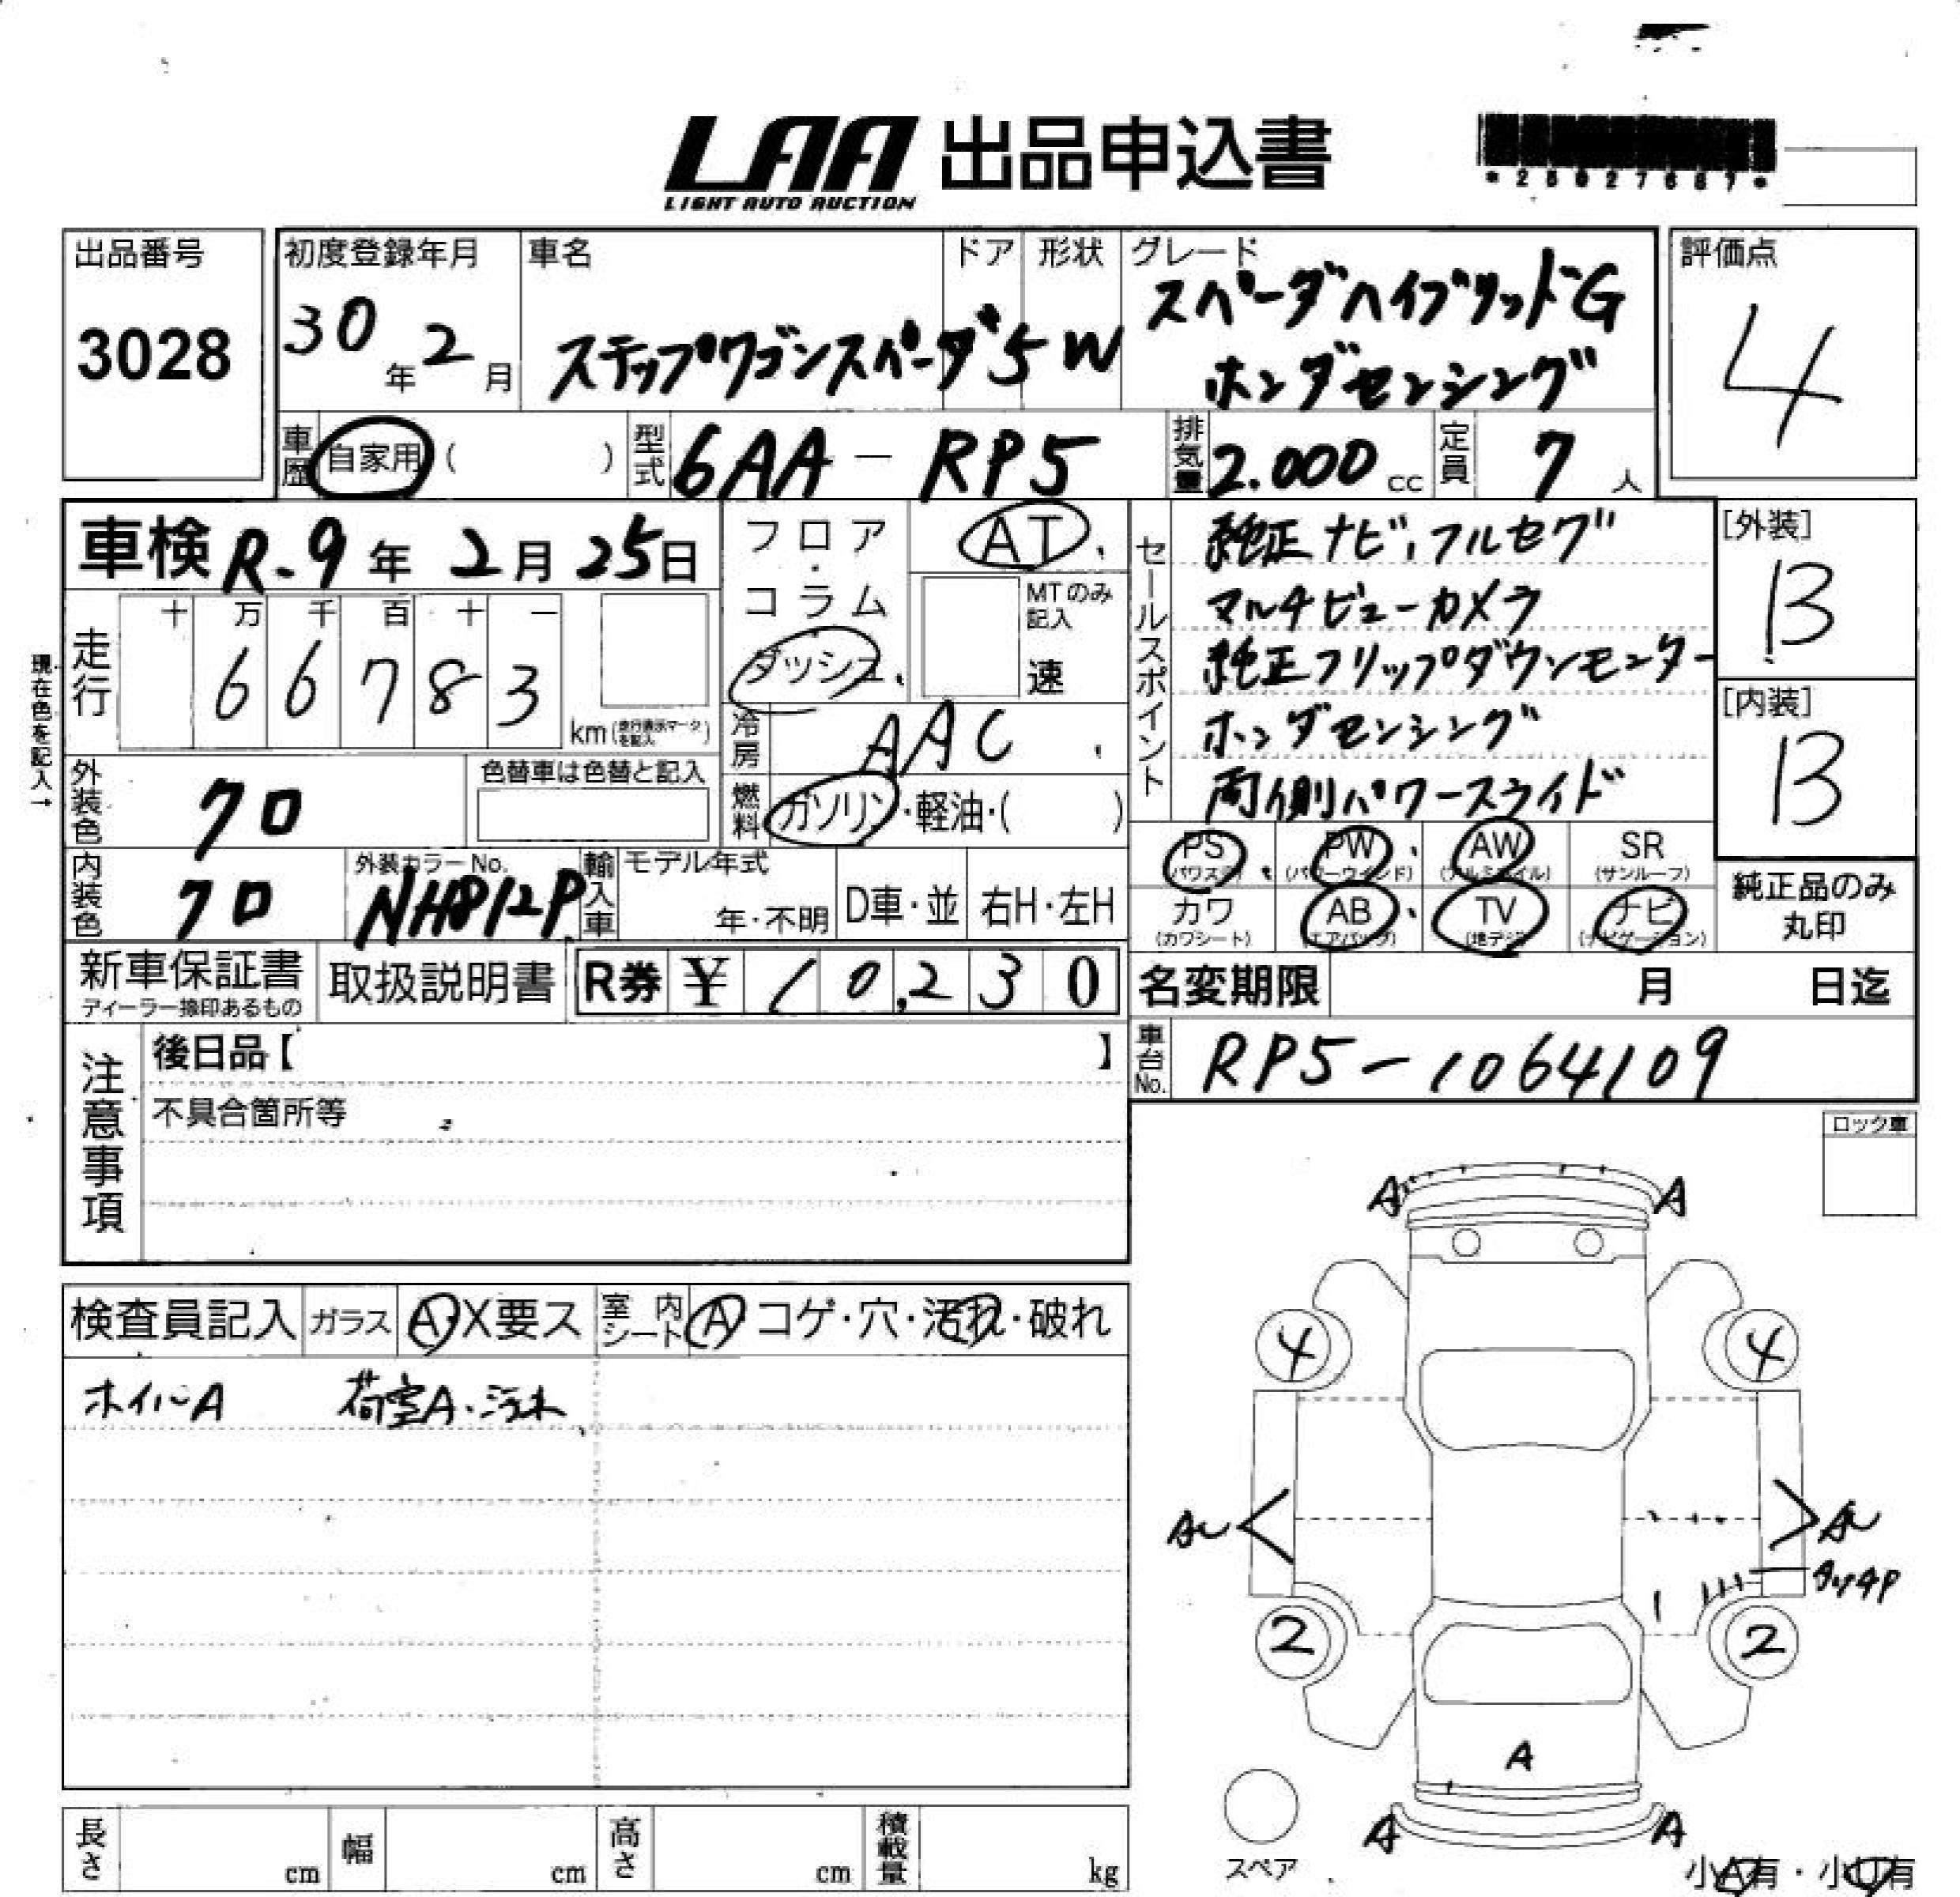 LAA 出品申込書
LIGHT AUTO AUCTION
出品番号
3028
初度登録年月
30年2月
車名
ステップワゴンスパーダ
ドア
5
形状
W
グレード
スパーダハイブリッドG
ホンダセンシング
評価点
4
車歴 自家用 ( )
型式 6AA - RP5
排気量 2.000 cc
定員 7 人
車検 R-9年 2月 25日
現在色を記入→
走行
十 万 千 百 十 一
6 6 7 8 3
km (走行表示マークを記入)
フロア・コラム
ダッシュ
AT
MTのみ記入
速
冷房 AAC
燃料 ガソリン・軽油・( )
外装色 クロ
色替車は色替と記入
内装色 クロ
外装カラーNo.
NH812P
輸入車
モデル年式
年・不明
D車・並
右H・左H
セールスポイント
純正ナビ、フルセグ
マルチビューカメラ
純正フリップダウンモニター
ホンダセンシング
両側パワースライド
[外装]
B
[内装]
B
PS (パワステ)
PW (パワーウインド)
AW (アルミホイル)
SR (サンルーフ)
カワ (カワシート)
AB (エアバッグ)
TV (地デジ)
ナビ (ナビゲーション)
純正品のみ
丸印
新車保証書
ディーラー捺印あるもの
取扱説明書
R券 ¥ 10,230
名変期限 月 日迄
車台No. RP5-1064109
注意事項
後日品【 】
不具合箇所等
ロック車
検査員記入
ガラス A・X要ス
室内シート A コゲ・穴・汚れ・破れ
ホイルA 荷室A・汚れ
A A
4 4
AU AU
タッチP
2 2
A
A A
スペア
小A有・小U有
長さ cm
幅 cm
高さ cm
積載量 kg